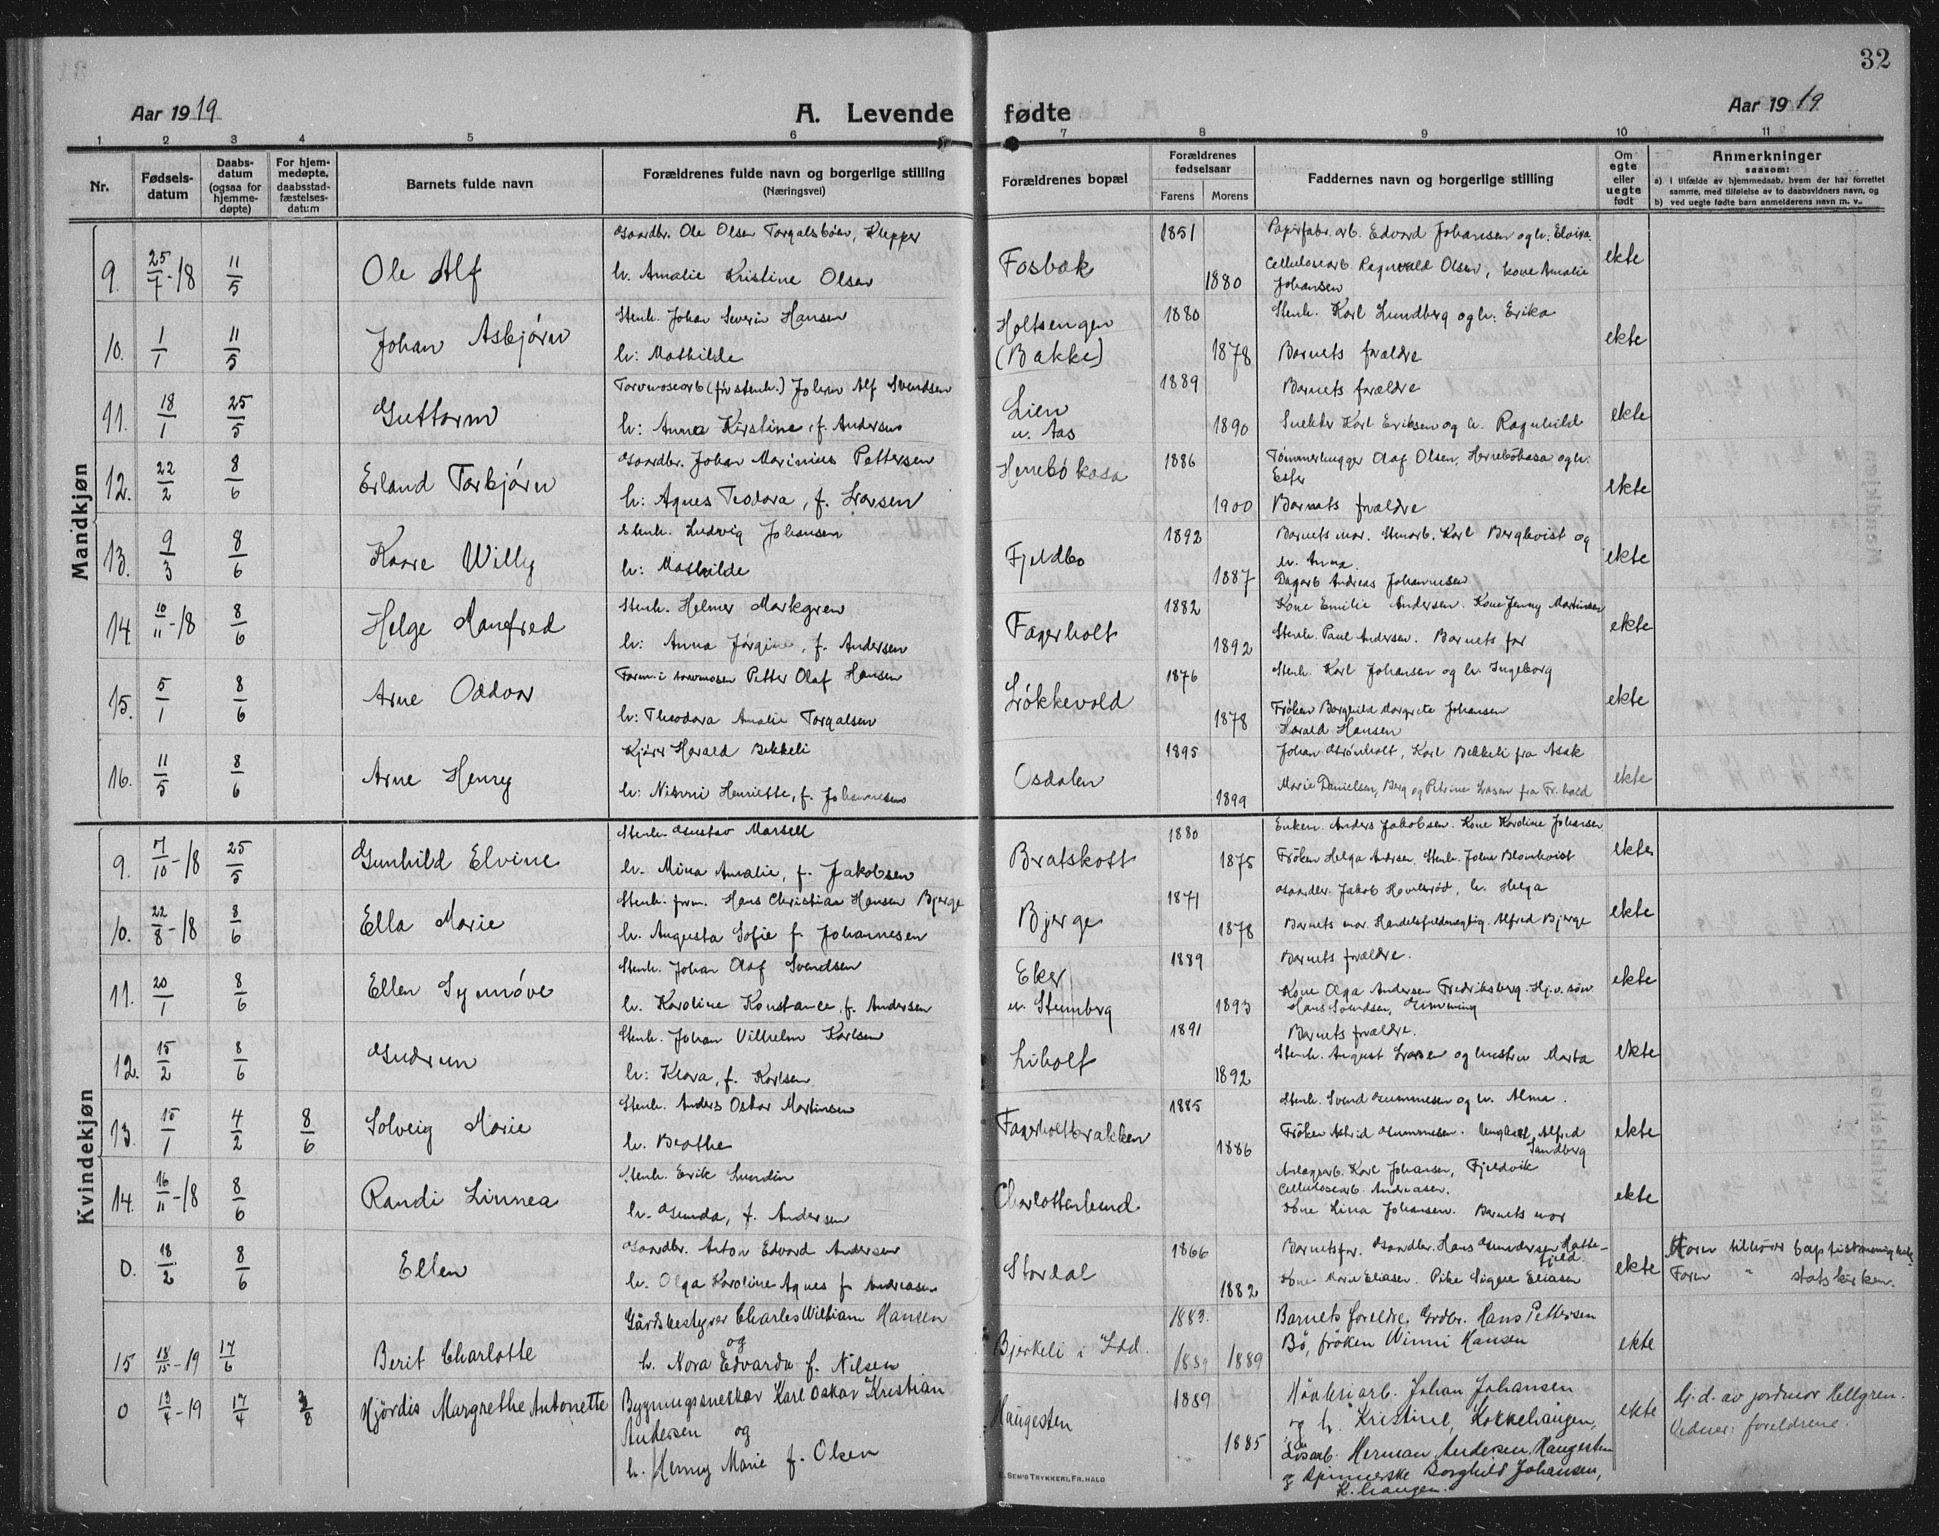 32
Aar 1919 A. Levende fødte Aar 1919
1 2 3 4 5 6 7 8 9 10 11
Nr. Fødselsdatum Daabsdatum (ogsaa for hjemmedøpte) For hjemmedøpte, daabsstadfæstelsesdatum Barnets fulde navn Forældrenes fulde navn og borgerlige stilling (Næringsvei) Forældrenes bopæl Forældrenes fødselsaar Farens Morens Faddernes navn og borgerlige stilling Om egte eller uegte født Anmerkninger saasom:
a) i tilfælde av hjemmedaab, hvem der har forrettet samme, med tilføielse av to daabsvidners navn, og
b) ved uegte fødte barn anmelderens navn m. v.
Mandkjøn
9. 25/7-18 11/5 Ole Alf Gaardbr. Ole Olsen Torgalsbøen, Klepper Fosbæk 1851 Papirfabr.arb. Edvard Johansen og h: Elvira. ekte
h. Amalie Kristine Olsen 1880 Cellulosearb. Ragnvald Olsen, kone Amalie
Johansen
10. 1/1 11/5 Johan Asbjørn Stenh. Johan Severin Hansen Holtsengen 1880 Stenh. Karl Lundberg og h: Erika ekte
h: Mathilde (Bakke) 1878 Barnets forældre
11. 18/1 25/5 Guttorm Torvmosearb (før stenh.) Johan Alf Svendsen Lien 1889 Barnets forældre ekte
h: Anna Kirstine, f. Andersen u. Aas 1890 Snekker Karl Eriksen og h. Ragnhild
12. 22/2 8/6 Erland Torbjørn Gaardbr. Johan Marinius Pettersen Herrebökasa 1886 Tømmerhugger Olaf Olsen, Herrebökasa og h. ekte
Ester
h: Agnes Teodora, f. Larsen 1900 Barnets forældre
13. 9/3 8/6 Kaare Willy Stenh. Ludvig Johansen Fjeldbo 1892 Barnets mor. Stenarb. Karl Bergkvist og ekte
h. Anna.
h: Mathilde 1887 Dagarb Andreas Johannesen
14. 10/11-18 8/6 Helge Manfred Stenh. Helmer Markgren Fagerholt 1882 Kone Emilie Andersen. Kone Jenny Martinsen ekte
h: Anna Jørgine, f. Andersen 1892 Stenh. Paul Andersen. Barnets far
15. 5/1 8/6 Arne Oddvar Form. i torvmosen Petter Olaf Hansen Løkkevold 1876 Stenh. Karl Johansen og h. Ingeborg ekte
h: Theodora Amalie Torgalsen 1878 Frøken Borghild Margrete Johansen
Harald Hansen
16. 11/5 8/6 Arne Henry Kjører Harald Bekkeli Osdalen 1895 Johan Grønholt, Karl Bekkeli fra Asak ekte
h: Nianni Henriette, f. Johannesen 1899 Marie Danielsen, Berg og Petrine Larsen fra Fr.hald
Kvindekjøn
9. 7/10-18 25/5 Gunhild Elvine Stenh. Gustav Marsell Bratskott 1880 Enken. Anders Jakobsen. Kone Karoline Johansen ekte
h. Mina Amalie, f. Jakobsen 1875 Frøken Helga Andersen, Stenh. Johan Blomkvist
10. 22/8-18 8/6 Ella Marie Stenh. form. Hans Christian Hansen Bjerge Bjerge 1871 Gaardbr. Jakob Hovelsrød, h. Helga ekte
h. Augusta Sofie f. Johannesen 1878 Barnets mor. Handelsfuldmægtig. Alfred Bjerge
11. 20/1 8/6 Ellen Synnøve Stenh. Johan Olaf Svendsen Eker 1889 Barnets forældre. ekte
h. Karoline Konstance, f. Andersen u. Stumberg 1893 Kone Olga Andersen Fredriksberg. Hj.v. søn
Hans Svendsen, Gimming
12. 15/2 8/6 Gudrun Stenh. Johan Vilhelm Karlsen Liholt 1891 Barnets forældre. ekte
h: Klara, f. Karlsen 1892 Stenh. August Larsen og hustru Marta
13. 15/1 4/2 8/6 Solveig Marie Stenh. Anders Oskar Martinsen Fagerholtbrækken 1885 Stenh. Svend Gummesen og h. Alma. ekte
h. Beathe 1886 Frøken Astrid Gummesen. Ungkarl Alfred
Sandberg
14. 16/11-18 8/6 Randi Linnea Stenh. Erik Lundin Charlottenlund Anlægsarb. Karl Johansen, Fjeldvik ekte
Cellulosearb. Andreasen.
h. Gunda, f. Andersen Kone Lina Johansen. Barnets mor
0. 18/2 8/6 Ellen Gaardbr. Anton Edvard Andersen Stordal 1866 Barnets far. Gaardbr. Hans Gundersen Hattefjeld. ekte Moren tilhører baptistmenigh.
h. Olga Karoline Agnes f. Andreasen 1882 Kone Marie Eliasen. Pike Signe Eliasen Faren " statskirken.
15 18/15-19 17/6 Berit Charlotte Gårdsbestyrer Charles William Hansen Bjørkeli i Idd. 1883. Barnets foreldre. Grdbr. Hans Pettersen ekte
og
h. Nora Edvarda f. Nilsen 1889 1889 Bø, frøken Winni Hansen
0 13/4-19 17/4 3/8 Hjördis Margrethe Antonette Bygningssnekker Karl Oskar Kristian Haugesten 1889 Høvleriarb. Johan Johansen ekte Hj.d. av jordmor Hellgren.
Andersen og og h. Kristine, Kokkehaugen, Vidner: foreldrene.
h. Henny Marie f. Olsen 1885 Løsarb. Herman Andersen, Haugesten
og spinnerske Borghild Johansen,
K.haugen.
E. SEM'S TRYKKERI, FR.HALD